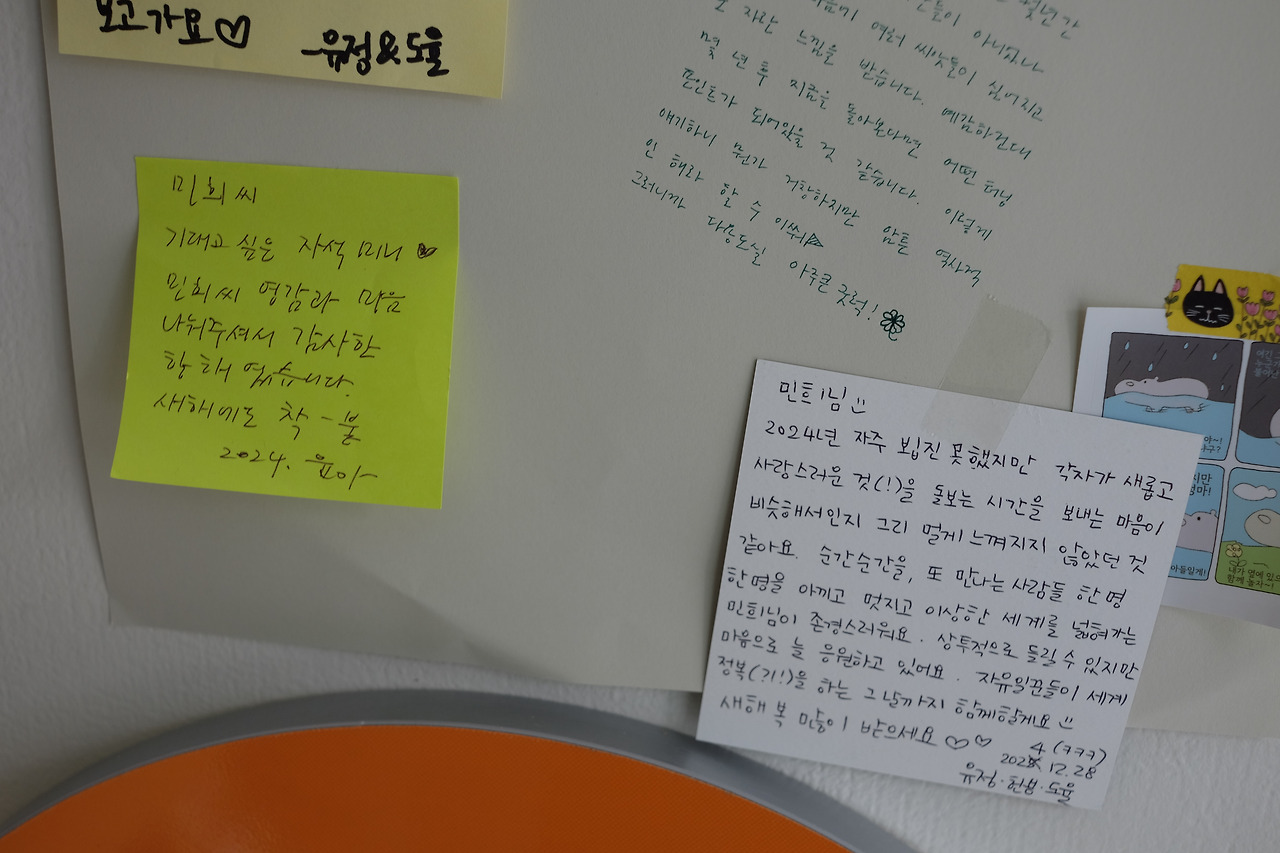 보고가요♡
유정&도율
몇 년간
들이 아니었나
여러 씨앗들이 심어지고
자란 느낌을 받습니다. 예감하건대
몇 년 후 지금을 돌아본다면 어떤 터닝
포인트가 되어있을 것 같습니다. 이렇게
얘기하니 뭔가 거창하지만 암튼 역사적
인 해라 할 수 이쒀
그러니까 다용도실 아주큰 굿럭!
민희씨
기대고 싶은 자석 미니
민희씨 영감과 마음
나눠주셔서 감사한
한 해 였습니다.
새해에도 착-붙
2024. 윤아
민희님
2024년 자주 뵙진 못했지만 각자가 새롭고
사랑스러운 것(!)을 돌보는 시간을 보내는 마음이
비슷해서인지 그리 멀게 느껴지지 않았던 것
같아요. 순간순간을, 또 만나는 사람들 한명
한명을 아끼고 멋지고 이상한 세계를 넓혀가는
민희님이 존경스러워요. 상투적으로 들릴 수 있지만
마음으로 늘 응원하고 있어요. 자유일꾼들이 세계
정복(?!)을 하는 그날까지 함께할게요
새해 복 많이 받으세요 ♡♡
4 (ㅋㅋㅋ)
2024.12.28
유정·헌용·도율
내가 옆에 있으
함께 놀자~!